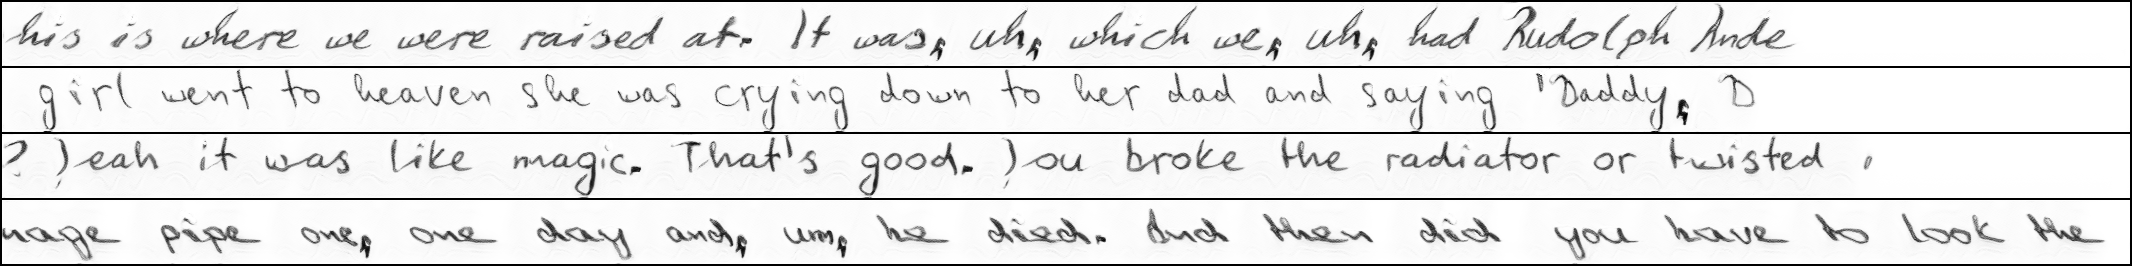 his is where we were raised at. It was, uh, which we, uh, had Rudolph Ande
girl went to heaven she was crying down to her dad and saying 'Daddy, D
? Yeah it was like magic. That's good. You broke the radiator or twisted
nage pipe one, one day and, um, he died. And then did you have to look the